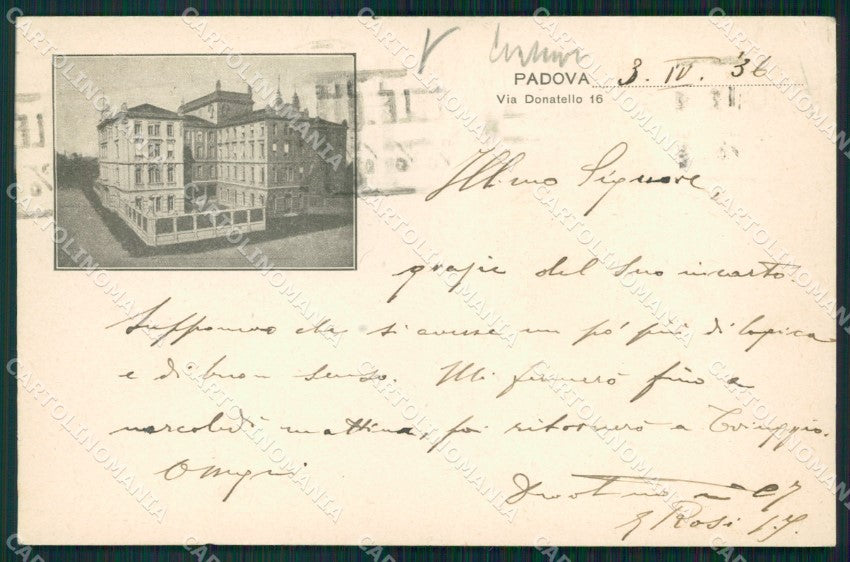 PADOVA 3. IV. '36
Via Donatello 16
Ill.mo Signore
grazie del Suo incarto
Supponevo che si avesse un po' più di logica
e di buon senso. Mi fermerò fino a
mercoledì mattina, poi ritornerò a Triuggio.
Ossequi
Rosi S.J.
CARTOLINOMANIA